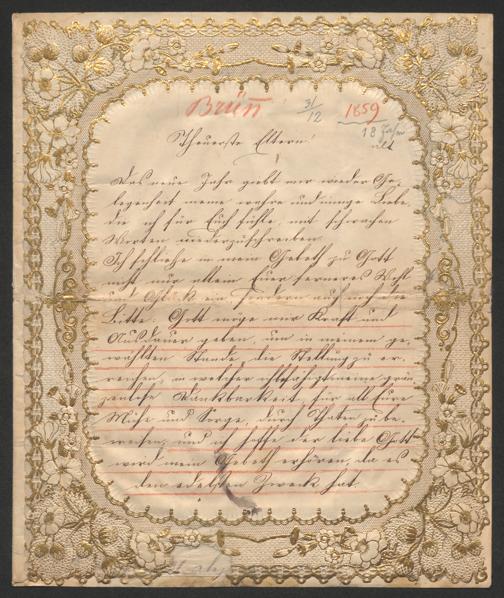 Brün̄ 3/12 1859
18 Jahr
alt
Theuerste Eltern!
Das neue Jahr giebt mir wieder Ge-
legenheit meine wahre und innige Liebe,
die ich für Euch fühle, mit schwachen
Worten niederzuschreiben.
Ich schließe in mein Gebeth zu Gott
nicht nur allein Euer ferneres Wohl
und Glück ein, sondern auch noch die
Bitte: Gott möge mir Kraft und
Ausdauer geben, um in meinem ge-
wählten Stande die Stellung zu er-
reichen, in welcher ich fähig meine grän-
zenlose Dankbarkeit, für all Eure
Mühe und Sorge, durch Thaten zu be-
weisen, und ich hoffe der liebe Gott
wird mein Gebeth erhören, da es
den edelsten Zweck hat.